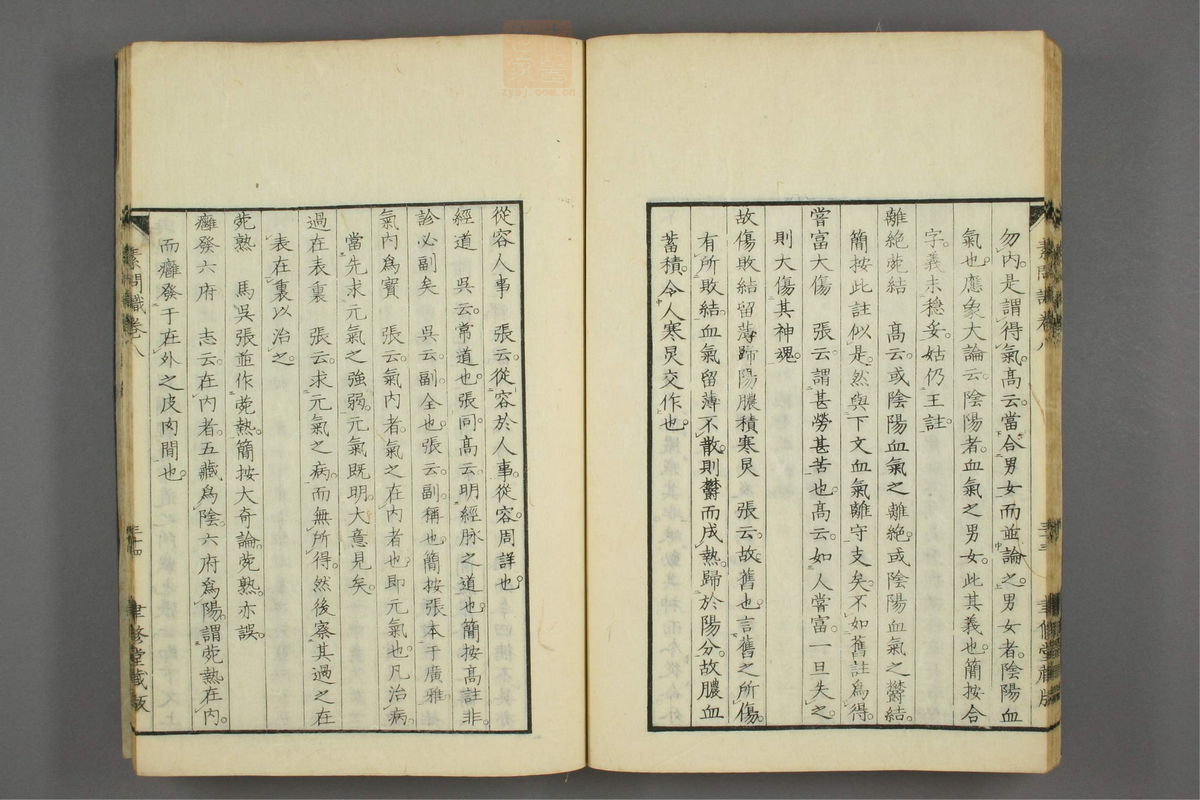 勿內是謂得氣高云當合男女而並論之男女者陰陽血
氣也應象大論云陰陽者血氣之男女此其義也簡按合
字義未穩妥姑仍王註
離絕菀結　高云或陰陽血氣之離絕或陰陽血氣之鬱結
簡按此註似是然與下文血氣離守支矣不如舊註爲得
嘗富大傷　張云謂甚勞甚苦也高云如人嘗富一旦失之
則大傷其神魂
故傷敗結留薄歸陽膿積寒炅　張云故舊也言舊之所傷
有所敗結血氣留薄不散則鬱而成熱歸於陽分故膿血
蓄積令人寒炅交作也
素問識卷八　三十三　聿修堂藏版
從容人事　張云從容於人事從容周詳也
經道　吳云常道也張同高云明經脉之道也簡按高註非
診必副矣　吳云副全也張云副稱也簡按張本于廣雅
氣內爲寶　張云氣內者氣之在內者也卽元氣也凡治病
當先求元氣之強弱元氣既明大意見矣
過在表裏　張云求元氣之病而無所得然後察其過之在
表在裏以治之
菀熟　馬吳張並作菀熱簡按大奇論菀熟亦誤
癰發六府　志云在內者五藏爲陰六府爲陽謂菀熱在內
而癰發于在外之皮肉間也
素問識卷八　三十四　聿修堂藏版